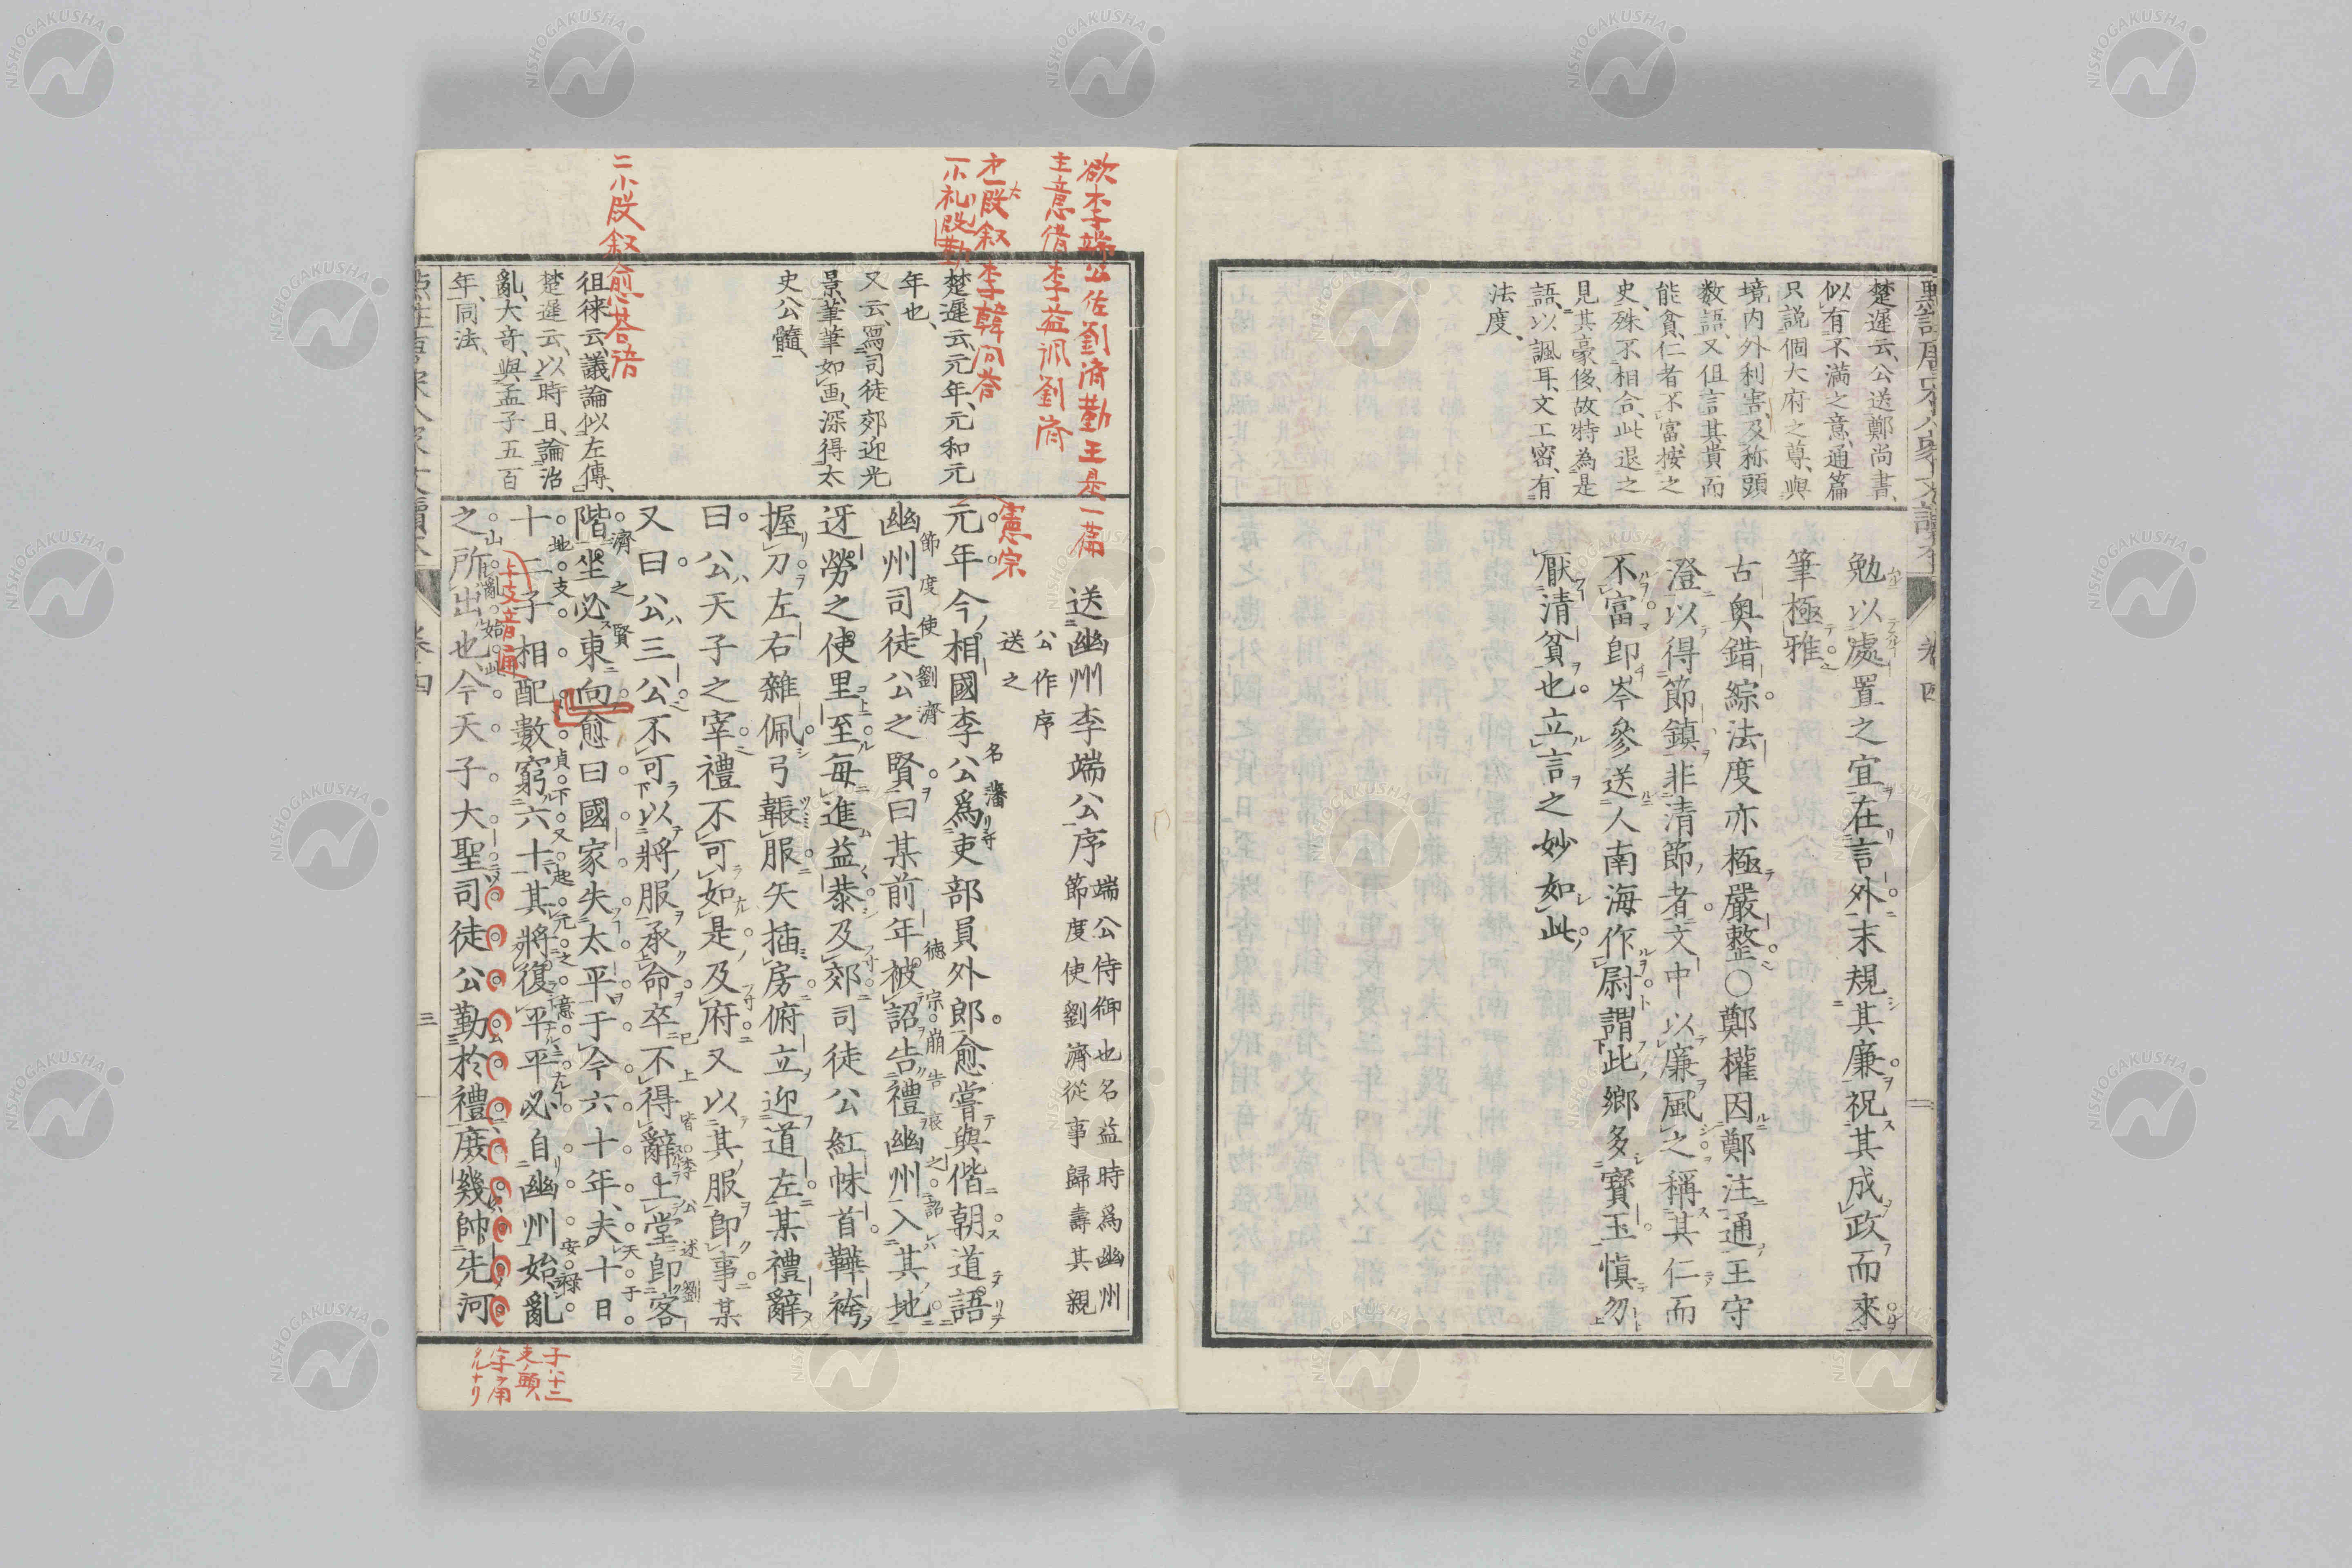 楚遲云、公送鄭尚書、
似有不滿之意、通篇
只説個大府之尊、與
境内外利害、及称頭
数語、又但言其貴而
能貧、仁者不富、按之
史、殊不相合、此退之
見其豪侈、故特為是
語、以諷耳、文工密、有
法度、
勉以處置之宜在言外末規其廉祝其成政而來
筆極雅
古奥錯綜法度亦極嚴整○鄭權因鄭注通王守
澄以得節鎮非清節者文中以廉風之稱其仁而
不富即岑參送人南海作尉謂此鄉多寶玉慎勿
厭清貧也立言之妙如此
卷四
二
欲李端公佐劉濟勤王是一篇
主意借李益諷劉濟
才一大段叙李韓問答
二小段叙愈答語
楚遲云、元年、元和元
年也、
又云、寫司徒郊迎光
景、筆筆如画、深得太
史公髓、
徂徠云、議論似左傳、
楚遲云、以時日、論治
亂、大奇、與孟子五百
年、同法、
送幽州李端公序
端公侍御也名益時爲幽州
節度使劉濟從事歸壽其親
公作序
送之
憲宗
元年今相國李公爲吏部員外郎愈嘗與偕朝道語
幽州司徒公之賢曰某前年被詔告禮幽州入其地
迓勞之使里至每進益恭及郊司徒公紅帓首鞾袴
握刀左右雜佩弓韔服矢插房俯立迎道左某禮辭
曰公天子之宰禮不可如是及府又以其服即事某
又曰公三公不可以將服承命卒不得辭上堂即客
階坐必東向愈曰國家失太平于今六十年夫十日
十二子相配數窮六十其將復平平必自幽州始亂
之所出也今天子大聖司徒公勤於禮庶幾帥先河
節度使劉濟
名藩
德宗崩告哀之詔
濟之賢
皆李公述劉
天干
地支
貞下又起元之意
安祿
山亂始此
干支音通
三
子ハ十二
支ノ頭
字ヲ用
タルナリ
NISHOGAKUSHA